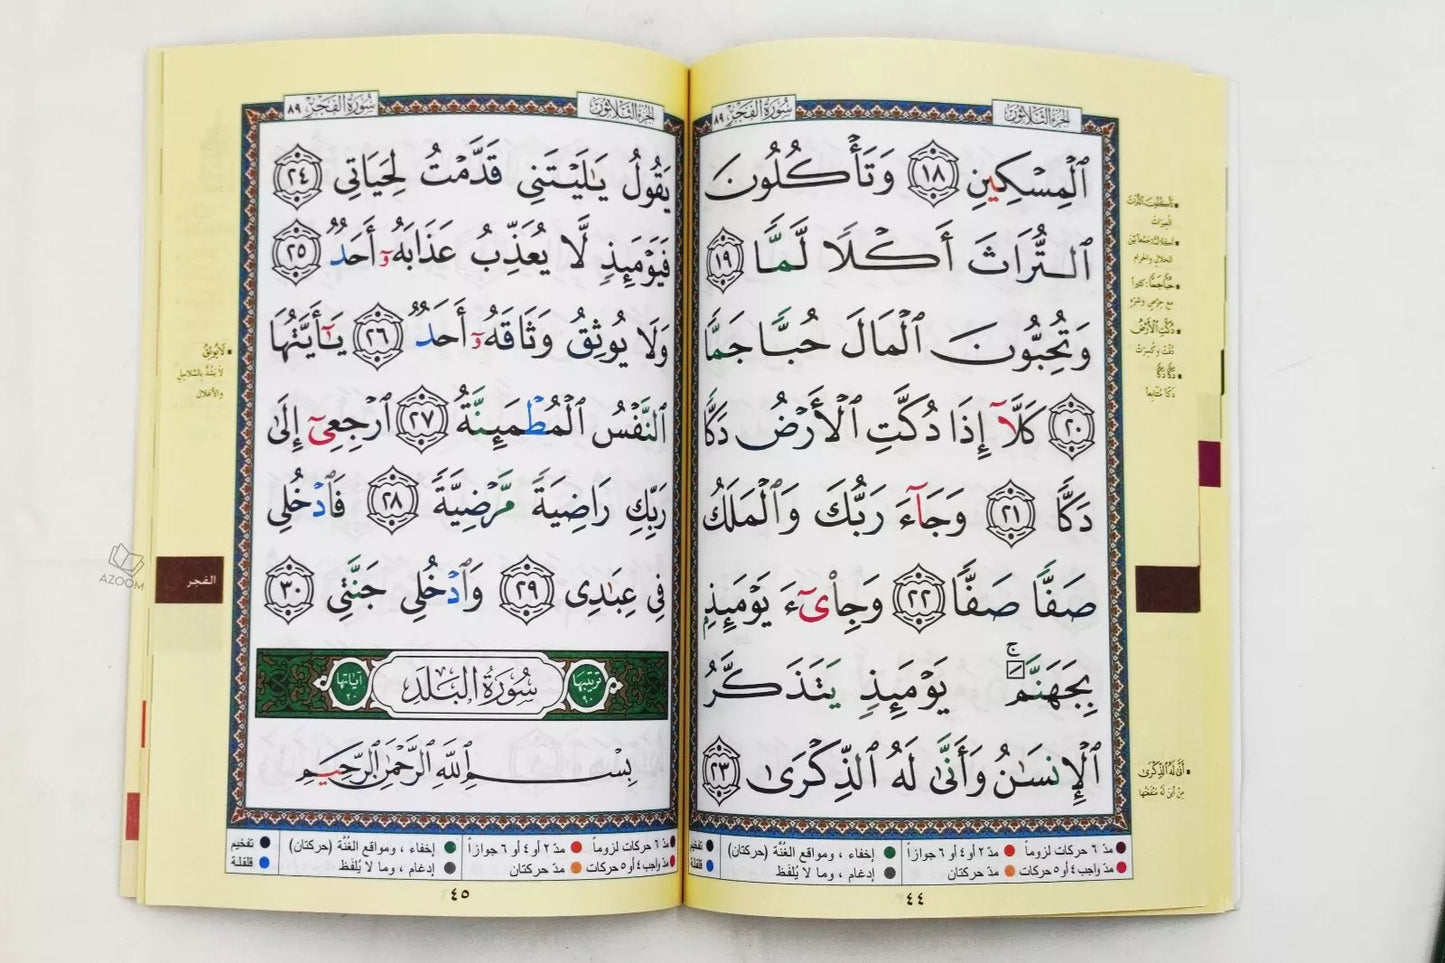 الجزء الثلاثون
سورة الفجر ٨٩
ٱلۡمِسۡكِينِ ١٨ وَتَأۡكُلُونَ
ٱلتُّرَاثَ أَكۡلٗا لَّمّٗا ١٩
وَتُحِبُّونَ ٱلۡمَالَ حُبّٗا جَمّٗا
٢٠ كَلَّآ إِذَا دُكَّتِ ٱلۡأَرۡضُ دَكّٗا
دَكّٗا ٢١ وَجَآءَ رَبُّكَ وَٱلۡمَلَكُ
صَفّٗا صَفّٗا ٢٢ وَجِاْيٓءَ يَوۡمَئِذِۭ
بِجَهَنَّمَۚ يَوۡمَئِذٖ يَتَذَكَّرُ
ٱلۡإِنسَٰنُ وَأَنَّىٰ لَهُ ٱلذِّكۡرَىٰ ٢٣
تأكلون التراث
الميراث
أكلا لما: جمعا بين
الحلال والحرام
حبا جما: كثيرا
مع حرص وشره
دكت الأرض
دقت وكسرت
دكا دكا
دكا متتابعا
أنى له الذكرى
من أين له منفعتها
مدّ ٦ حركات لزوماً مدّ ٢ أو ٤ أو ٦ جوازاً إخفاء ، ومواقع الغُنَّة (حركتان) تفخيم
مدّ واجب ٤ أو ٥ حركات مدّ حركتان إدغام ، وما لا يُلفَظ قلقلة
٤٤
الجزء الثلاثون
سورة الفجر ٨٩
يَقُولُ يَٰلَيۡتَنِي قَدَّمۡتُ لِحَيَاتِي ٢٤
فَيَوۡمَئِذٖ لَّا يُعَذِّبُ عَذَابَهُۥٓ أَحَدٞ ٢٥
وَلَا يُوثِقُ وَثَاقَهُۥٓ أَحَدٞ ٢٦ يَٰٓأَيَّتُهَا
ٱلنَّفۡسُ ٱلۡمُطۡمَئِنَّةُ ٢٧ ٱرۡجِعِيٓ إِلَىٰ
رَبِّكِ رَاضِيَةٗ مَّرۡضِيَّةٗ ٢٨ فَٱدۡخُلِي
فِي عِبَٰدِي ٢٩ وَٱدۡخُلِي جَنَّتِي ٣٠
ترتيبها ٩٠ سُورَةُ الْبَلَدِ آياتها ٢٠
بِسۡمِ ٱللَّهِ ٱلرَّحۡمَٰنِ ٱلرَّحِيمِ
لا يوثق
لا يشد بالسلاسل
والأغلال
الفجر
مدّ ٦ حركات لزوماً مدّ ٢ أو ٤ أو ٦ جوازاً إخفاء ، ومواقع الغُنَّة (حركتان) تفخيم
مدّ واجب ٤ أو ٥ حركات مدّ حركتان إدغام ، وما لا يُلفَظ قلقلة
٤٥
AZOOM